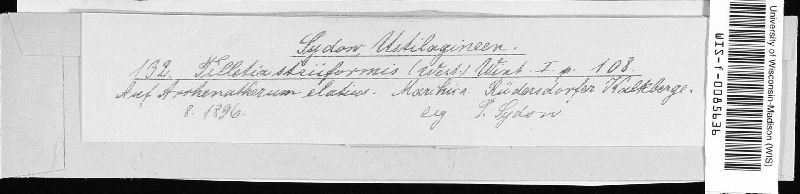 Sydow, Ustilagineen.
132. Tilletia striiformis (West.) Wint. I p. 108.
Auf Arrhenatherum elatius. Marchica Rüdersdorfer Kalkberge.
8. 1896. leg. P. Sydow
University of Wisconsin-Madison (WIS)
WIS-f-0085636